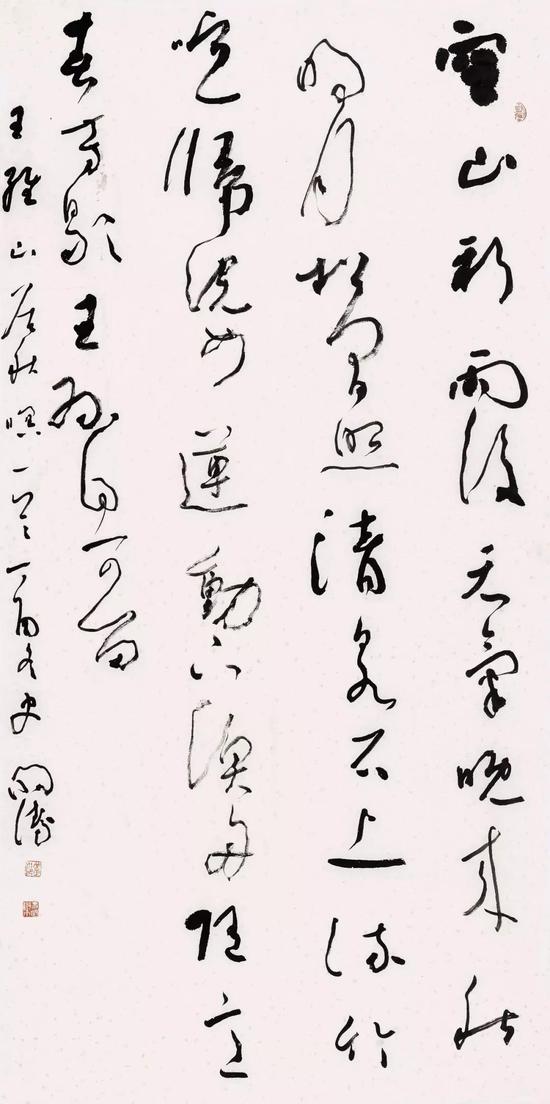 空山新雨後天氣晚來秋
明月松間照清泉石上流竹
喧歸浣女蓮動下漁舟隨意
春芳歇王孫自可留
王維山居秋暝一首丁酉冬史